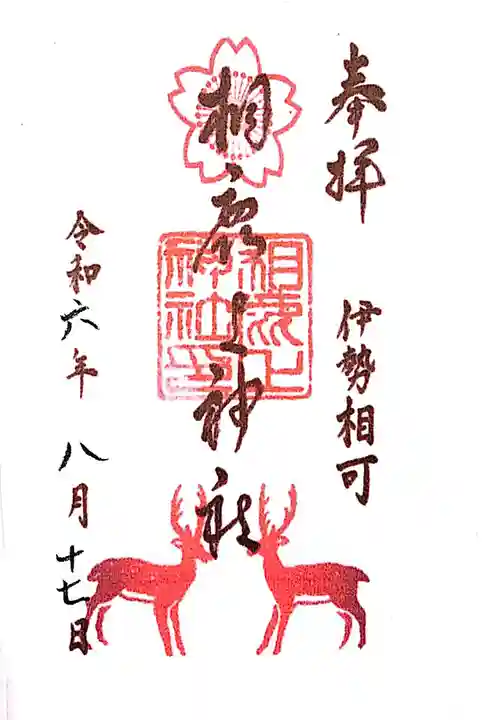 奉拝
伊勢相可
相鹿上神社
相鹿上神社印
令和六年八月十七日